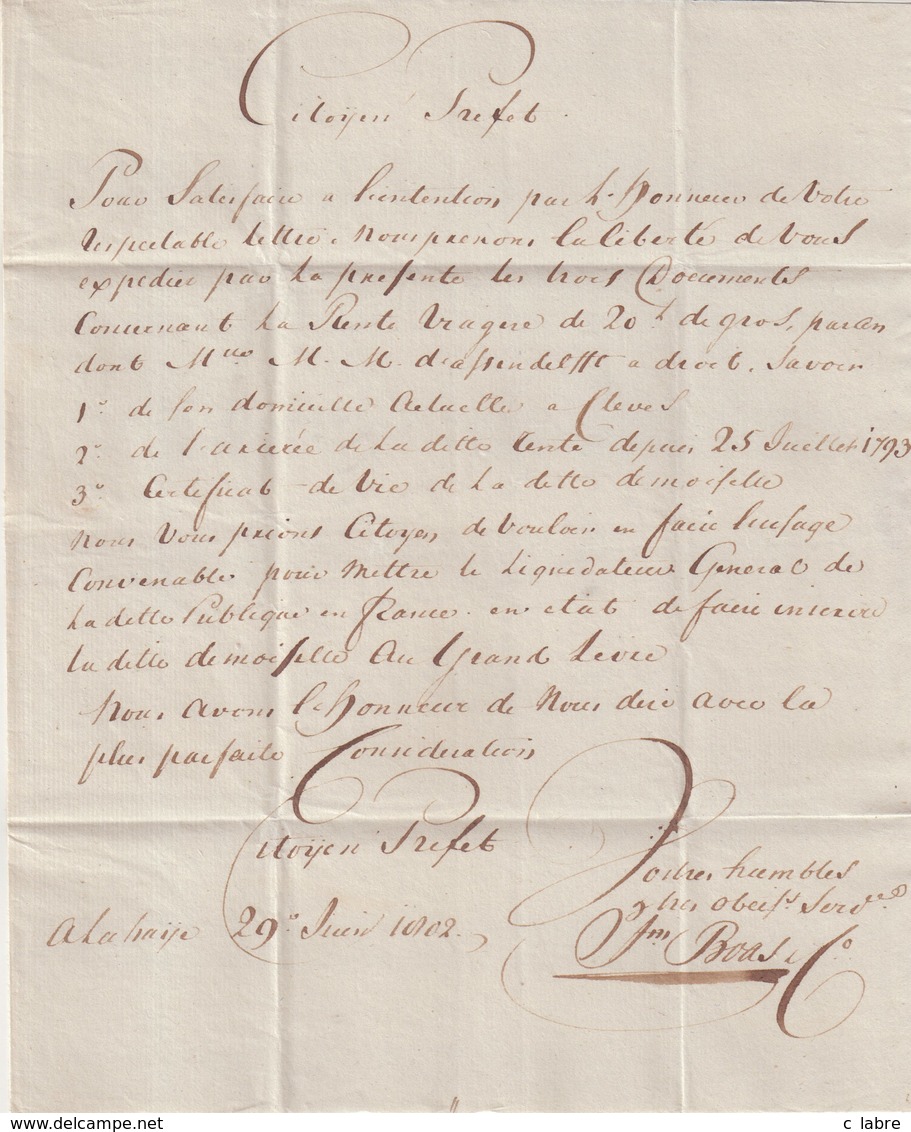 Citoÿen Prefet
Pour Satisfaire a l'intention par L'Honneur de Votre
Respectable lettre, Nous prenons la liberté de Vous
expedier par la presente les trois Documents
Concernant La Rente Viagere de 20 L de gros, par an
dont Mlle M. M. d'assendelfft a droit, Savoir
1o de son domicille Actuelle a Cleves
2o de l'arierée de la ditte rente depuis 25 Juillet 1793
3o Certificat de Vie de La ditte demoiselle
Nous Vous prions Citoyen de Vouloir en faire l'usage
Convenable pour Mettre le Liquidateur General de
La dette Publique en France en etat de faire inscrire
La ditte demoiselle Au Grand Livre
Nous avons l'Honneur de Nous dire avec la
plus parfaite Consideration
Citoÿen Prefet
Votres humbles
tres obeiss. Servrs
A La haije 29o Juin 1802.
Boas & Co
c labre